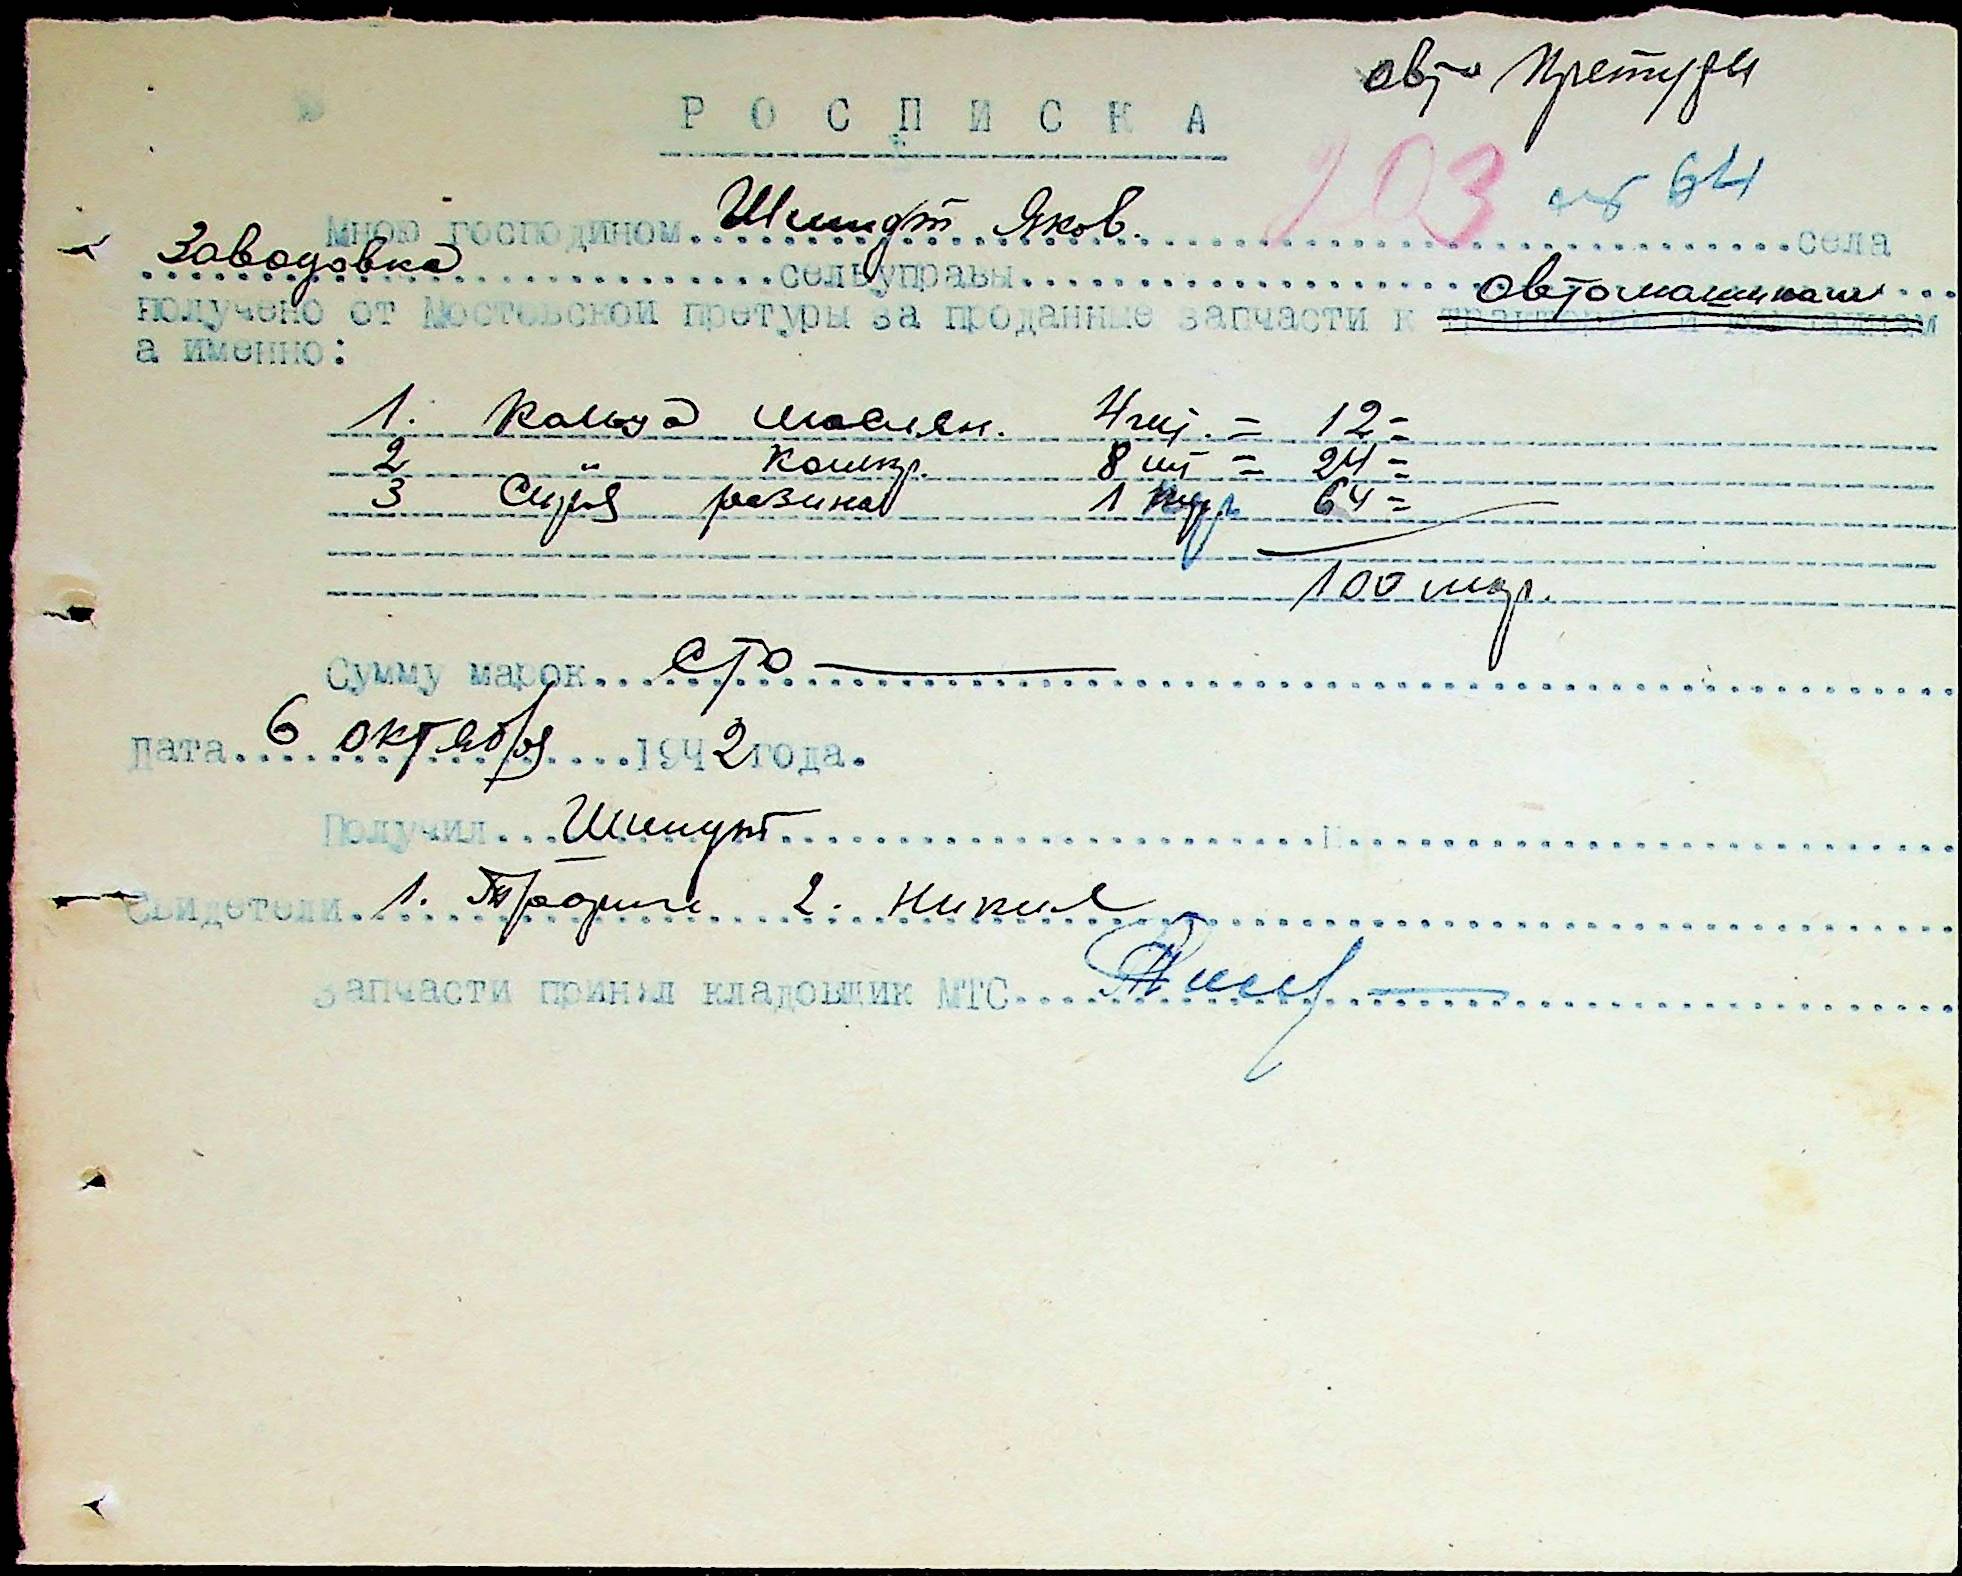 авто Претуры
РОСПИСКА
203 64
Мною господином Шмидт Яков. села
Заводовка сельуправы автомашинам
получено от Мостовской претуры за проданные запчасти к тракторам и
а именно:
1. Кольца маслян. 4 шт. = 12=
2 " компр. 8 шт = 24=
3 Сырая резина 1 64=
100 мар.
Сумму марок сто
Дата 6 октября 1942 года.
Получил Шмидт
Свидетели 1. 2.
Запчасти принял кладовщик МТС